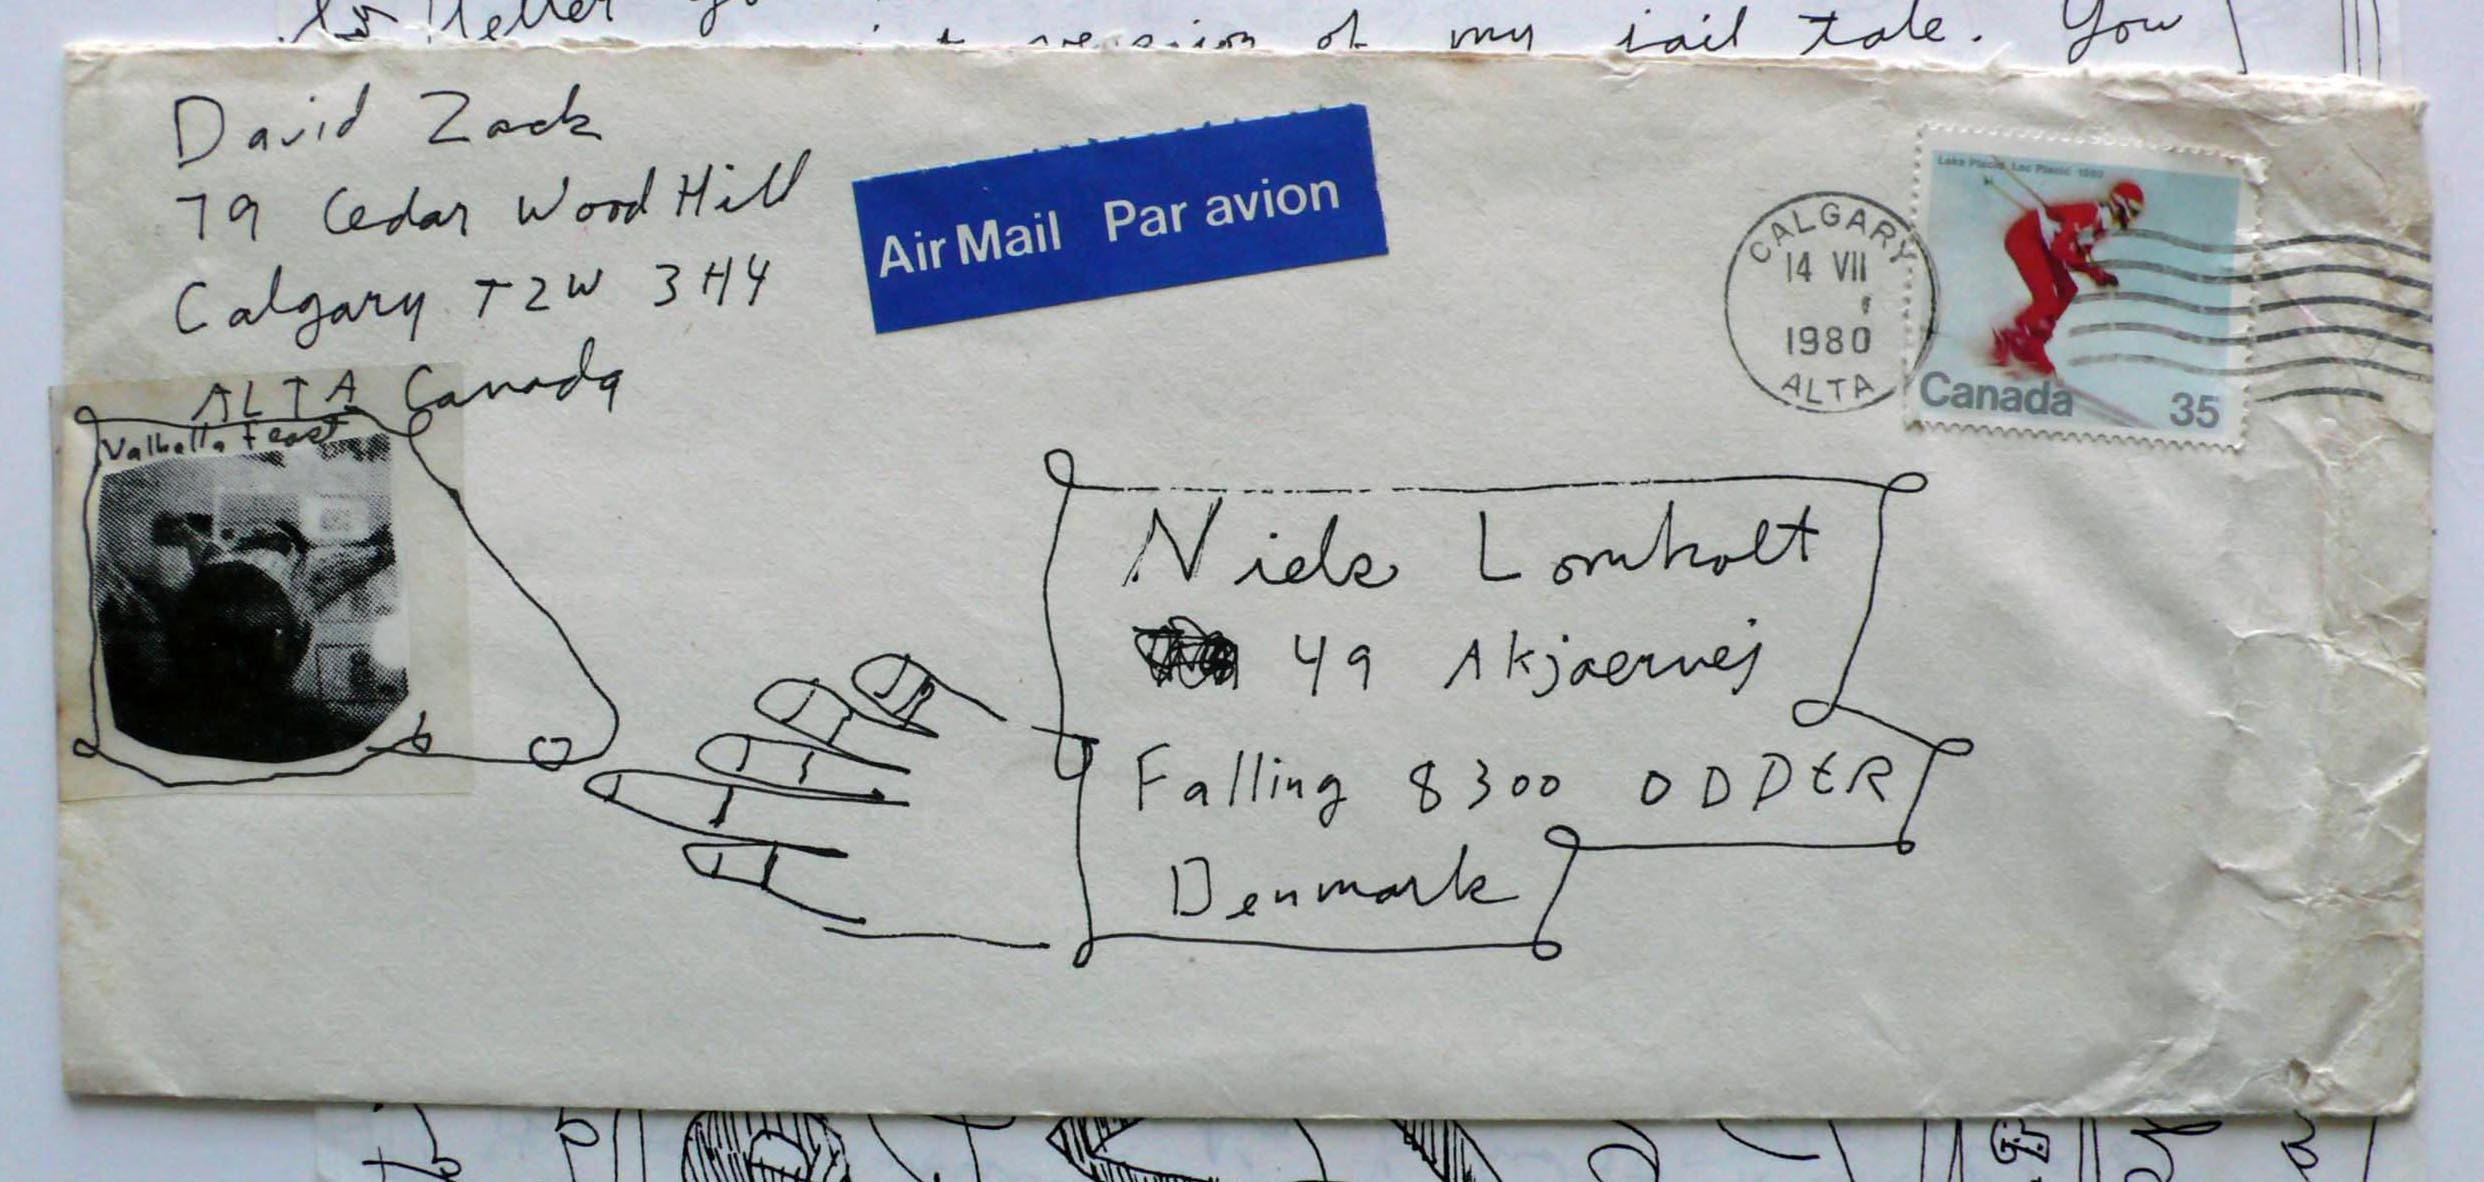 letter
version of my jail tale. You
David Zack
79 Cedar Wood Hill
Calgary T2W 3H4
ALTA Canada
Valhalla Feast
Air Mail Par avion
CALGARY
14 VII
1980
ALTA
Lake Placid Lac Placid 1980
Canada 35
Niels Lomholt
49 Akjaervej
Falling 8300 ODDER
Denmark